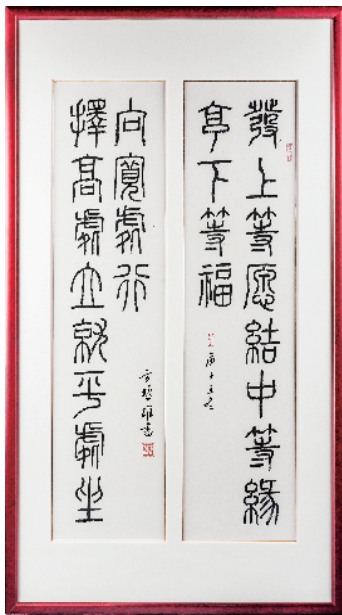 發上等愿結中等緣
享下等福
擇高處立就平處坐
向寬處行